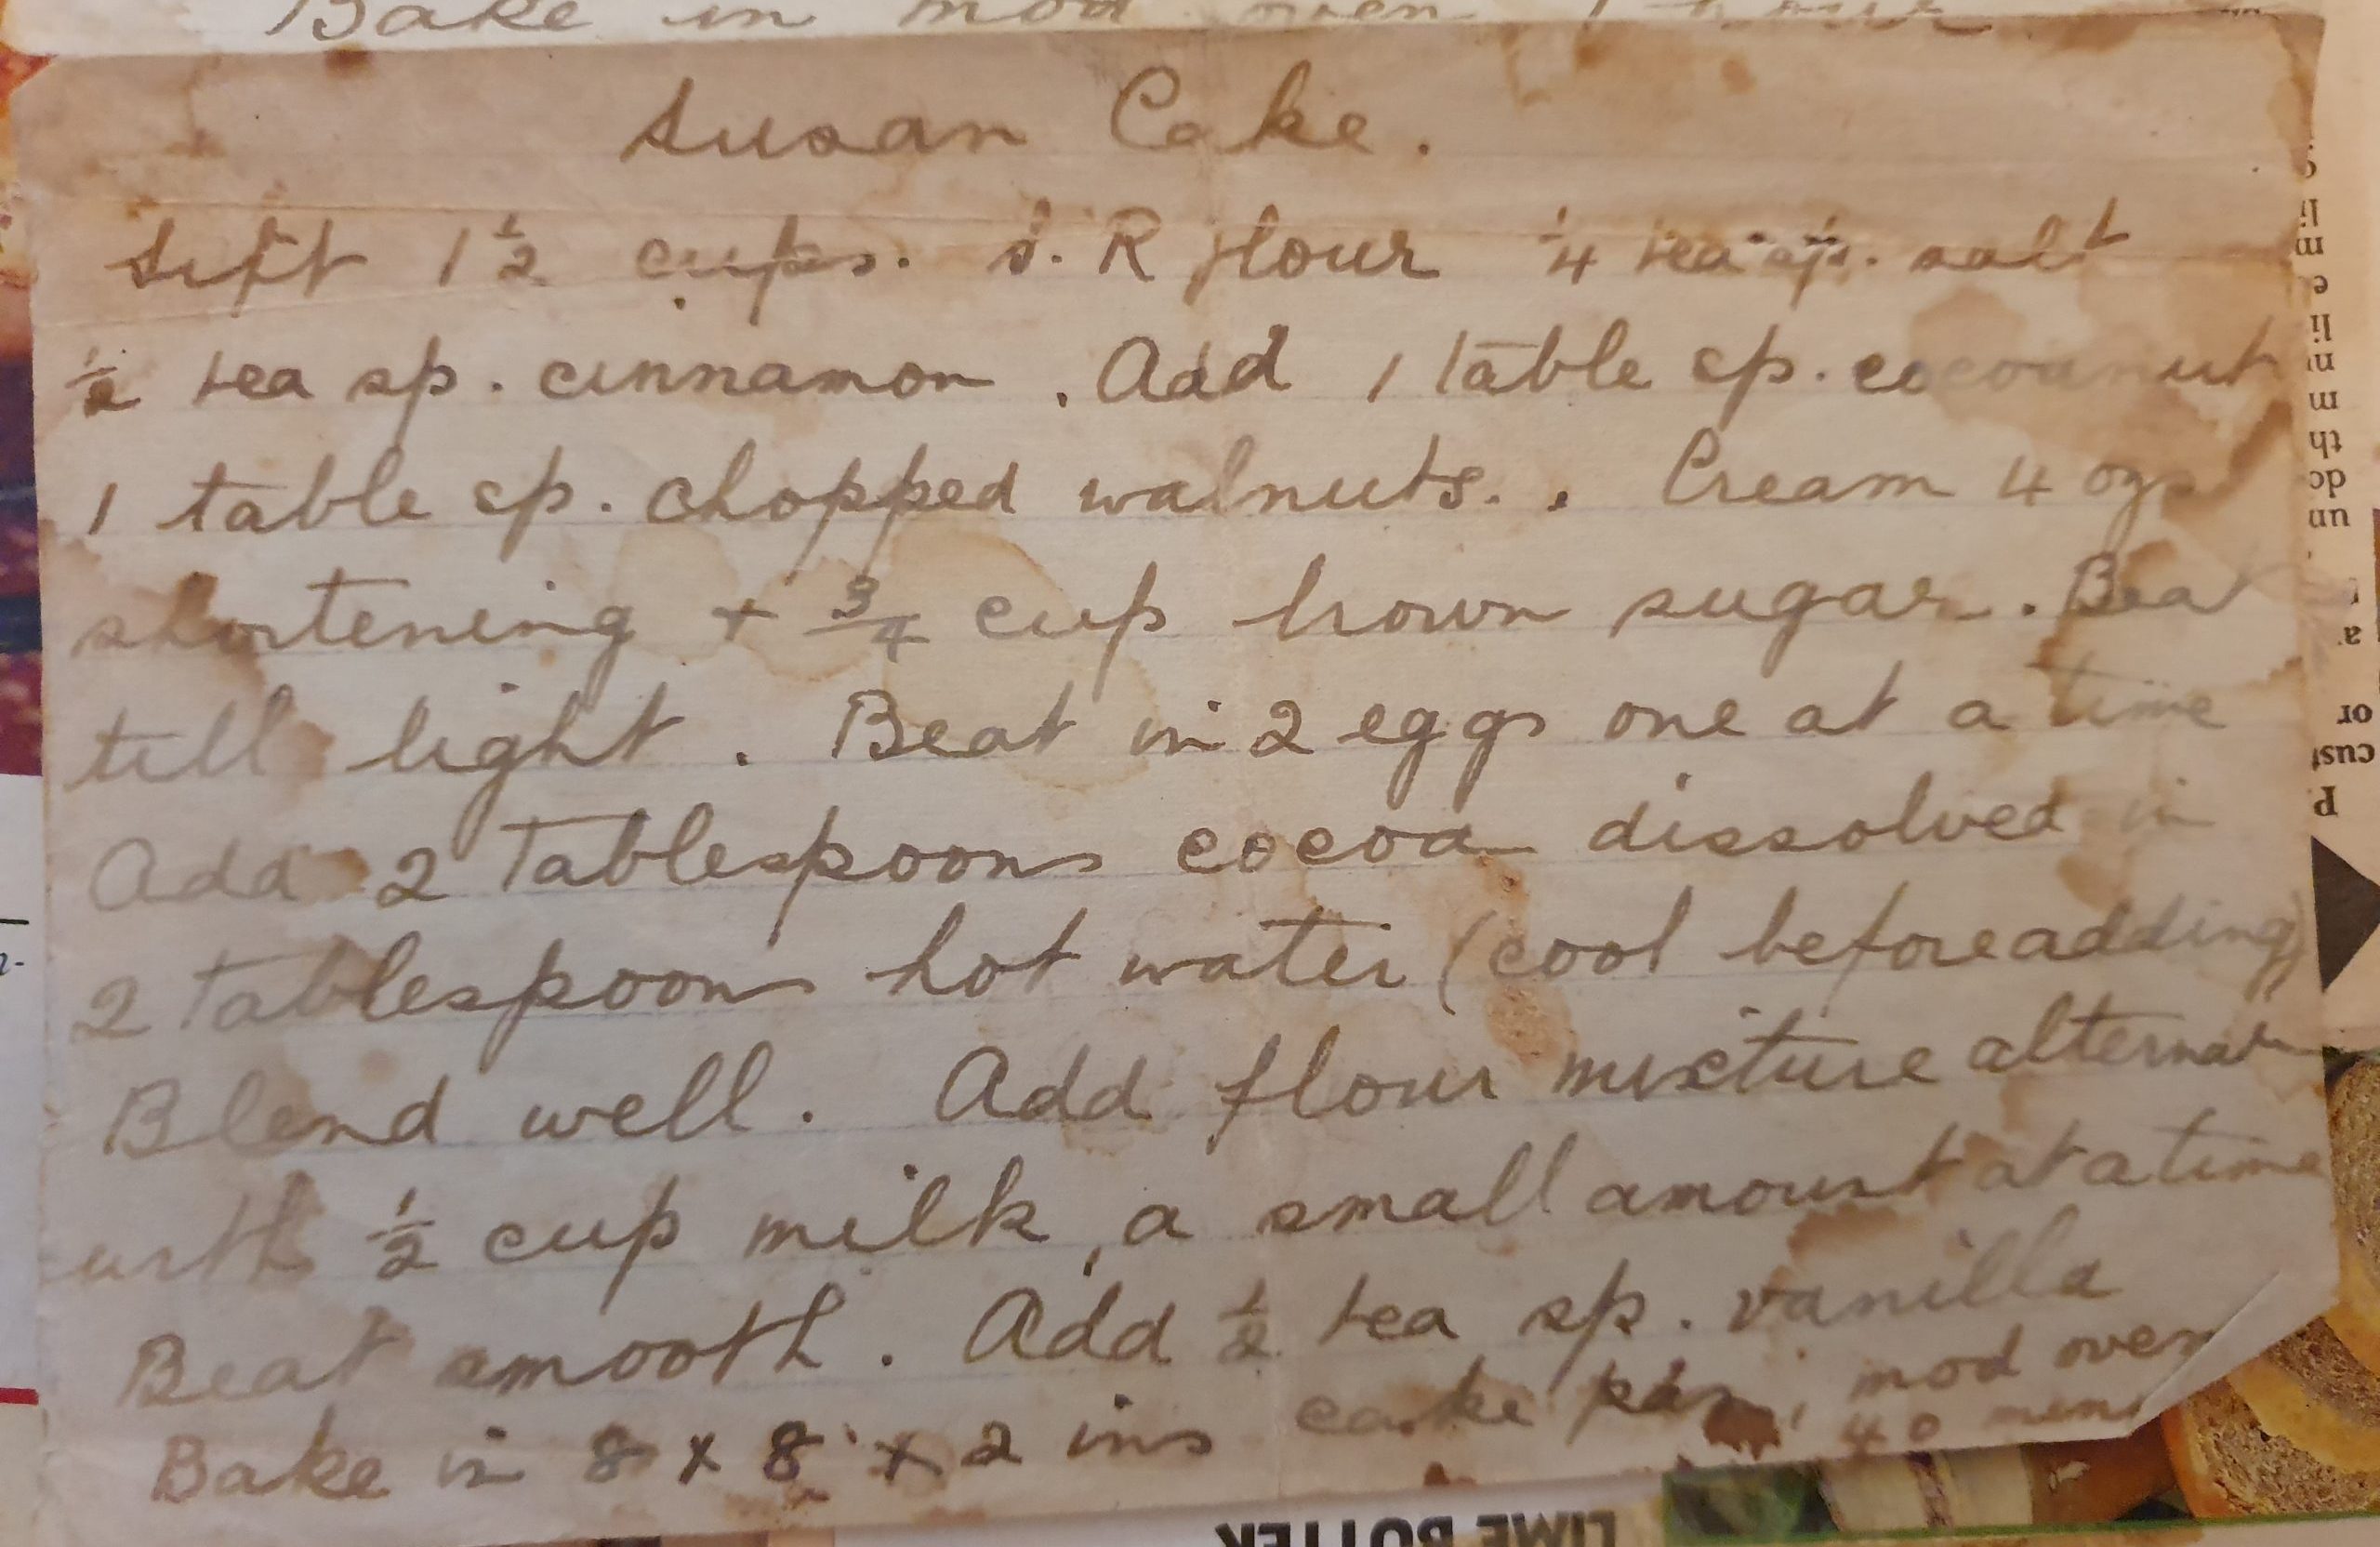 Bake in mod oven 1 hour
Susan Cake.
Sift 1 1/2 cups. S. R flour 1/4 tea sp. salt
1/2 tea sp. cinnamon. Add 1 table sp. cocoanut
1 table sp. chopped walnuts.. Cream 4 ozs
shortening + 3/4 cup brown sugar. Beat
till light. Beat in 2 eggs one at a time
Add 2 Tablespoons cocoa dissolved in
2 Tablespoons hot water (cool before adding)
Blend well. Add flour mixture alternate
with 1/2 cup milk, a small amount at a time
Beat smooth. Add 1/2 tea sp. vanilla
Bake in 8 x 8 x 2 ins cake pan, mod oven
40 mins
LIME BUTTER
li
m
e
li
m
th
do
un
a
or
cust
P